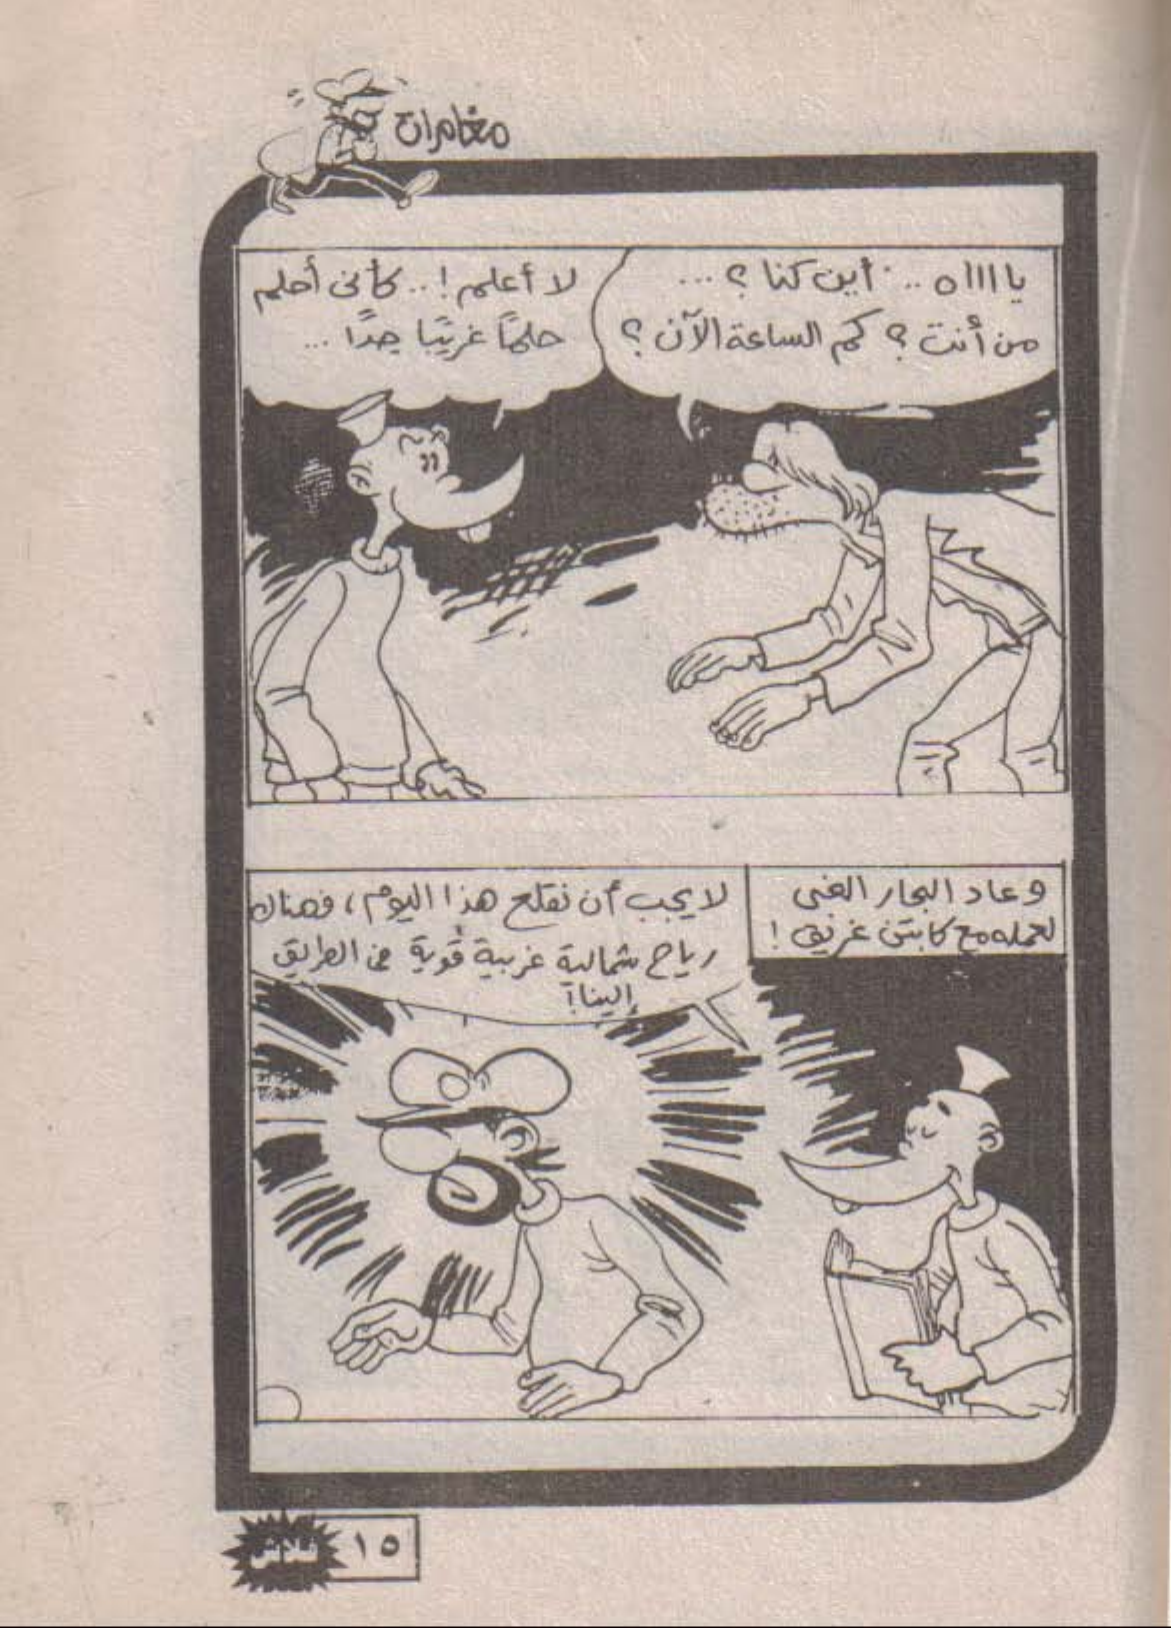 مغامرات
ياااااه .. أين كنا ؟ ...
من أنت ؟ كم الساعة الآن ؟
لا أعلم ! .. كأنى أحلم
حلمًا غريبًا جدًا ...
وعاد البحار الغنى
لعمله مع كابتن غريق !
لا يجب أن نقلع هذا اليوم ، فهناك
رياح شمالية غربية قوية فى الطريق
إلينا !
١٥
فلاش